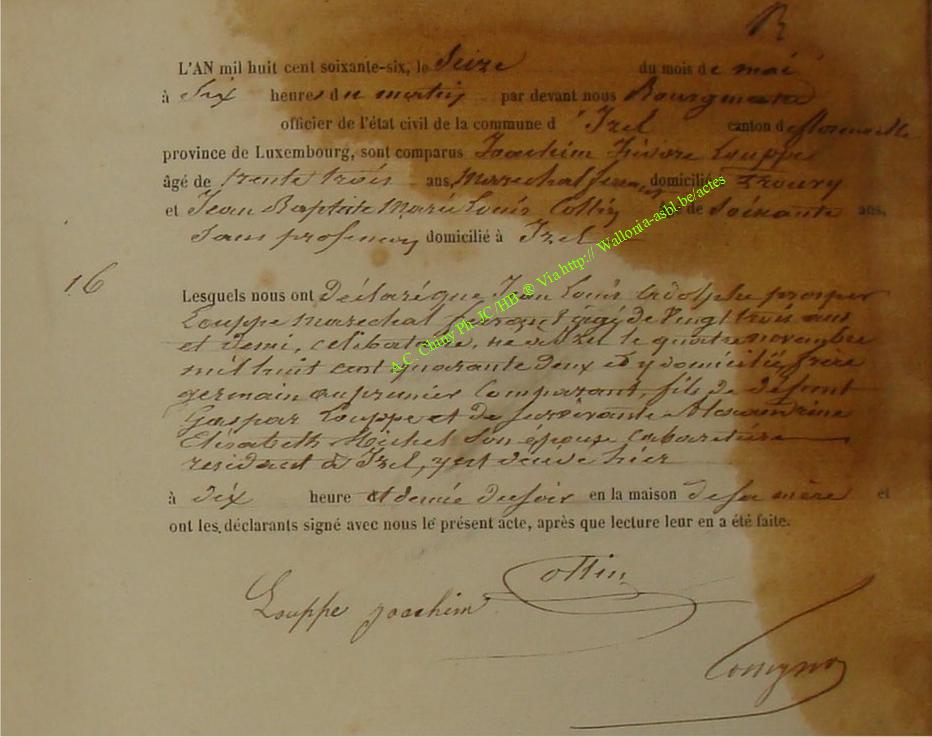 L'AN mil huit cent soixante-six, le Seize du mois de mai
à Six heures du matin par devant nous Bourgmestre
officier de l'état civil de la commune d'Izel canton de florenville
province de Luxembourg, sont comparus Joachim Isidore Louppe
âgé de trente trois ans, Marechal ferrant domicilié
et Jean Baptiste Marie Louis Collin de Soixante ans,
Sans profession domicilié à Izel
16
Lesquels nous ont Déclaré que Jean Louis Adolphe prosper
Louppe Marechal ferrant agé de Vingt trois ans
et demi, celibataire, né à Izel le quatre novembre
mil huit cent quarante deux et y domicilié, frère
germain au premier Comparant, fils de défunt
Gaspar Louppe et de survivante Alexandrine
Elisabeth Michel Son épouse cabaretière
residant à Izel, y est décédé hier
à dix heure et demie du soir en la maison de sa mère et
ont les déclarants signé avec nous le présent acte, après que lecture leur en a été faite.
Collin
Louppe joachim
A.C. Chiny Ph. JC /HB ® Via http:// Wallonia-asbl.be/actes